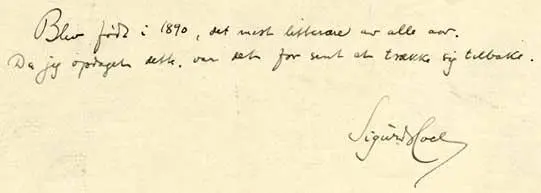 Blev født i 1890, det mest litterære av alle aar.
Da jeg opdaget dette, var det for sent at trække sig tilbake.
Sigurd Hoel